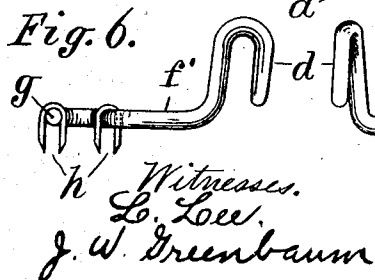 Fig. 6.
d'
g
f'
d
h
Witnesses.
L. Lee.
J. W. Greenbaum